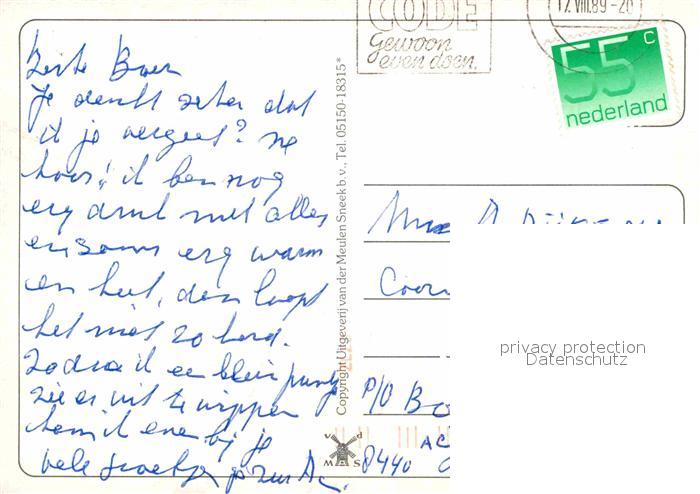 CODE
Gewoon
even doen.
17.VIII.89-20
55 c
nederland
Boer
Je denkt zeker dat
ik je vergeet? Ne
hoor! ik ben nog
erg druk met alles
en soms erg warm
en heet, dan loopt
het niet zo hard.
Zodra ik een klein puntje
zie er uit te wippen
kom ik even bij je
vele groetjes
Copyright Uitgeverij van der Meulen Sneek b.v., Tel. 05150-18315*
P/O Bo
8440 AC
v d
M S
privacy protection
Datenschutz